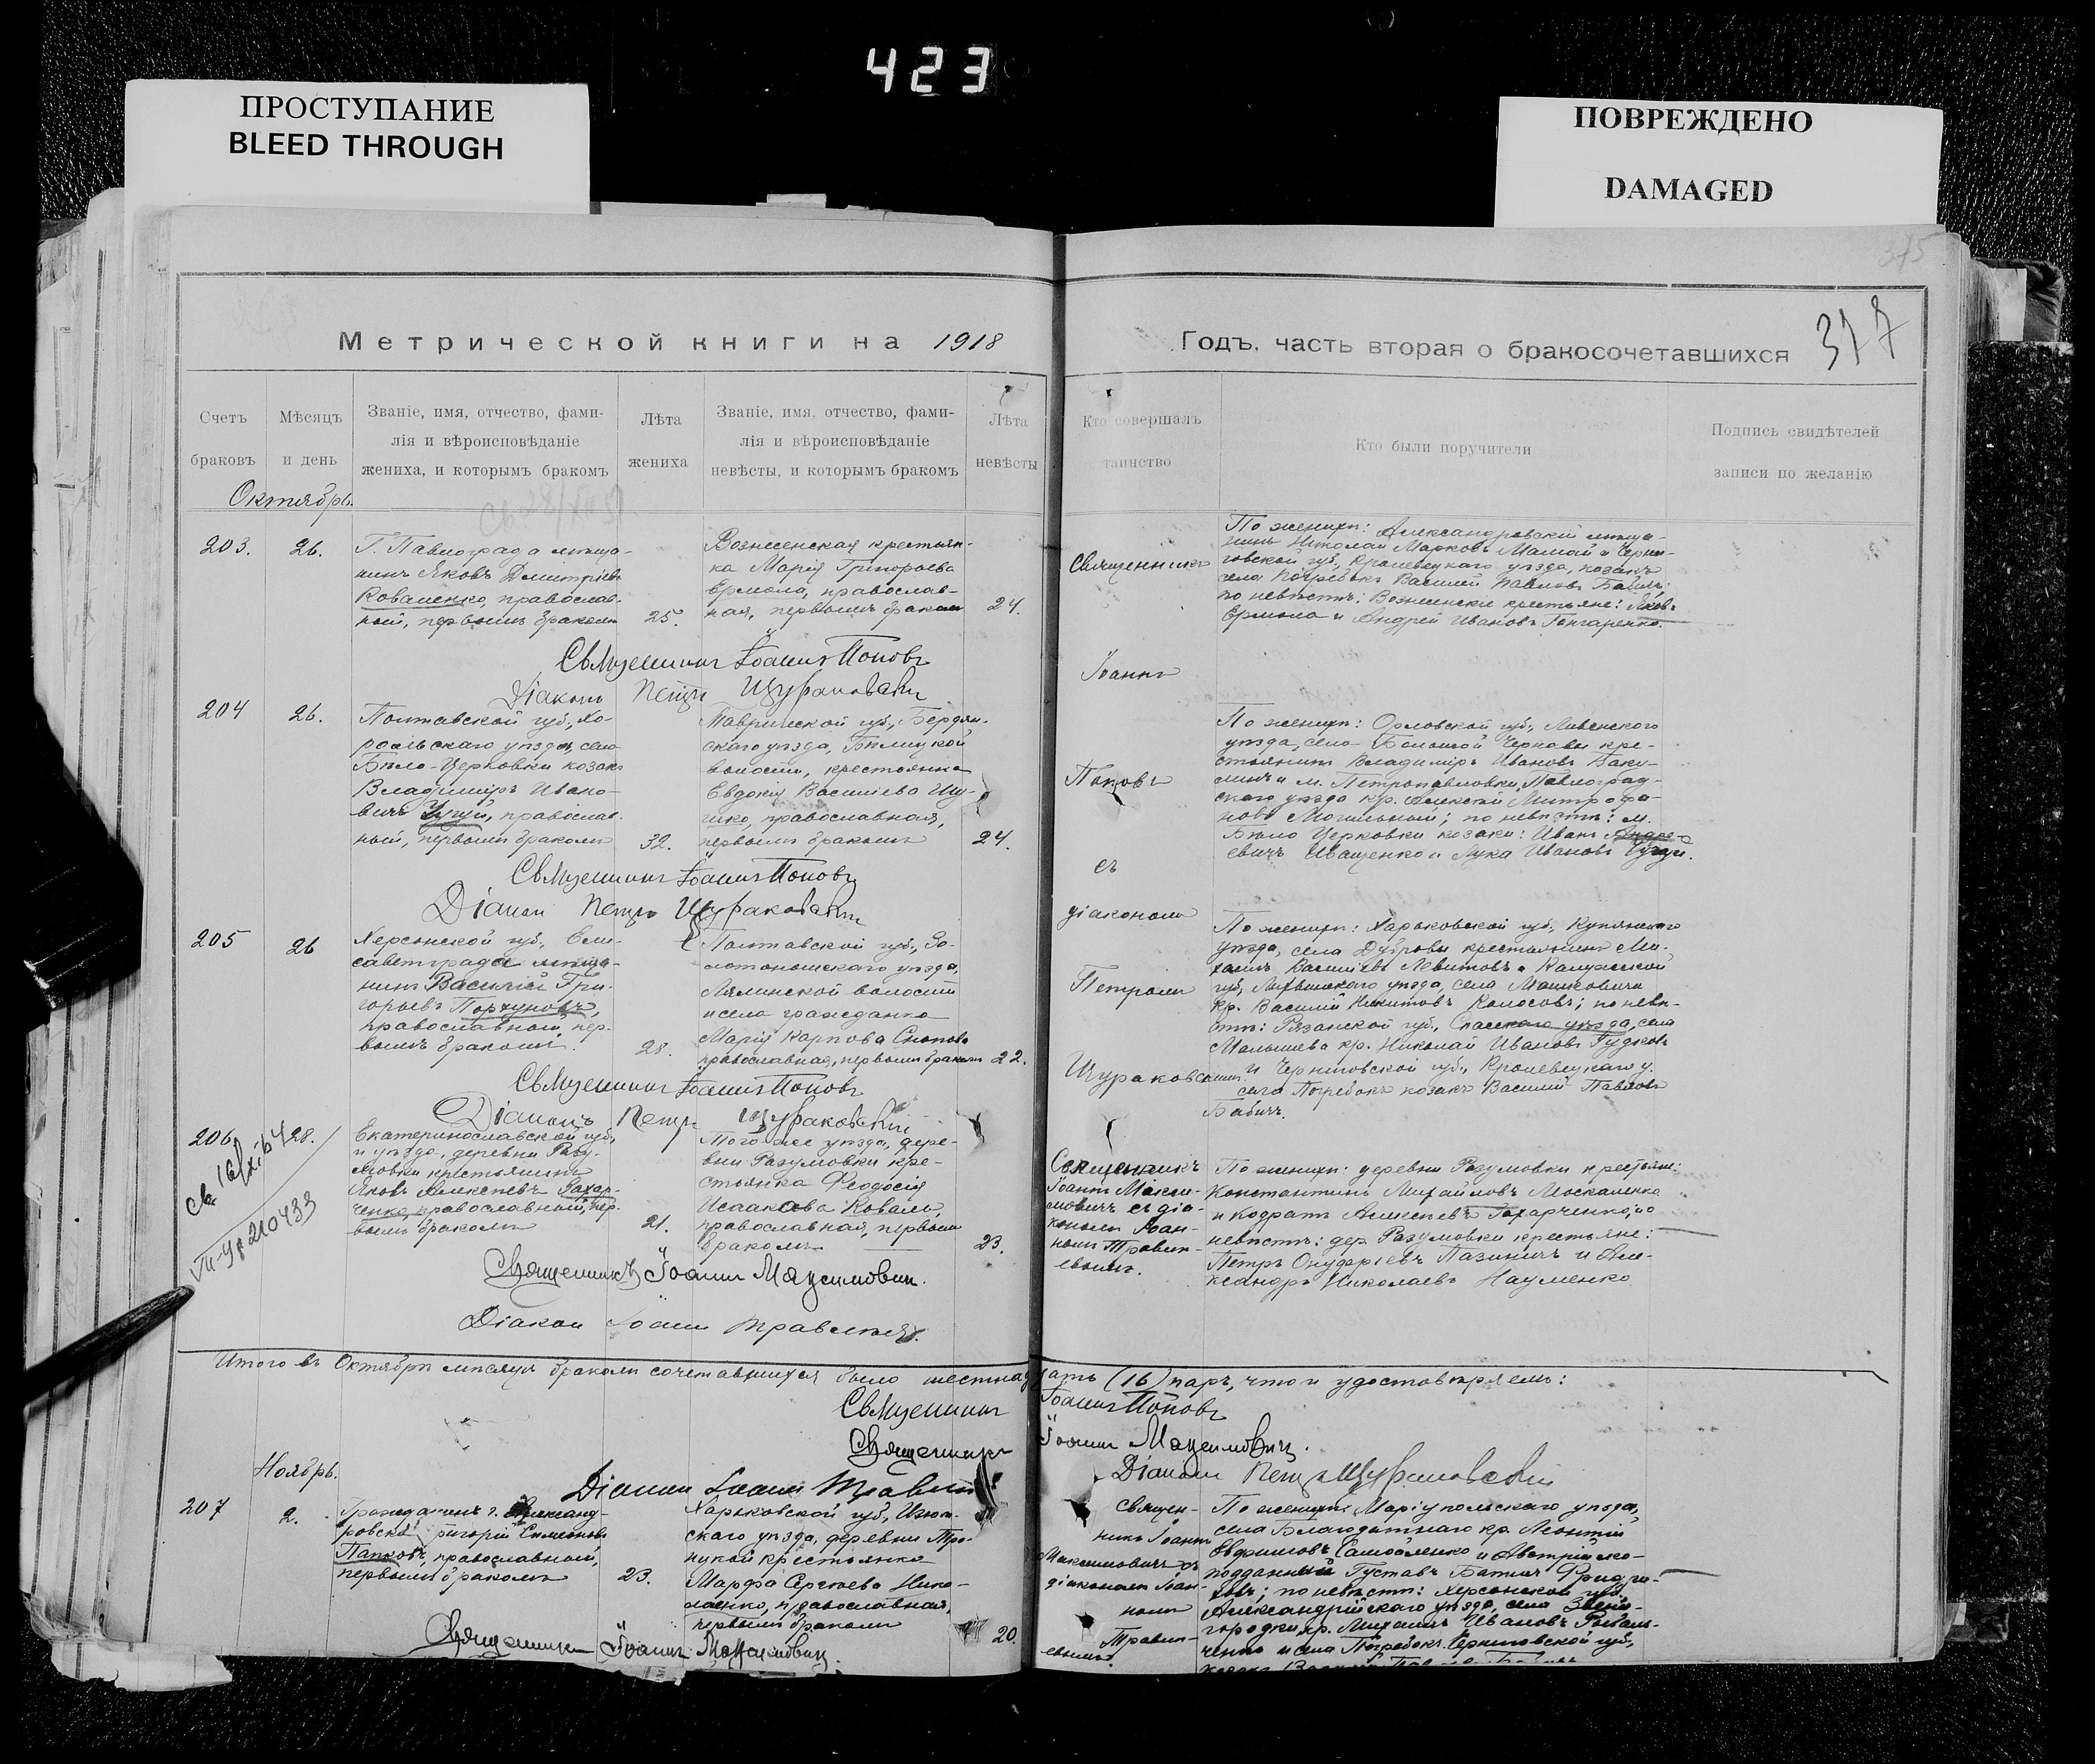 423
ПРОСТУПАНИЕ
BLEED THROUGH
ПОВРЕЖДЕНО
DAMAGED
375
377
Метрической книги на 1918
Годъ, часть вторая о бракосочетавшихся
Счетъ браковъ
Мѣсяцъ и день
Званіе, имя, отчество, фами-
лія и вѣроисповѣданіе
жениха, и которымъ бракомъ
Лѣта жениха
Званіе, имя, отчество, фами-
лія и вѣроисповѣданіе
невѣсты, и которымъ бракомъ
Лѣта невѣсты
Кто совершалъ таинство
Кто были поручители
Подпись свидѣтелей
записи по желанію
Октябрь.
203.
26.
Г. Павлограда мѣща-
нинъ Яковъ Димитріевъ
Коваленко, православ-
ный, первымъ бракомъ
25.
Вознесенская крестьян-
ка Марія Григорьева
Ермола, православ-
ная, первымъ бракомъ
24.
Священникъ
По женихѣ: Александровскій мѣща-
нинъ Николай Марковъ Мамай и Черни-
говской губ., Кролевецкаго уѣзда, козакъ
села Погребокъ Василій Павловъ Бабичъ;
по невѣстѣ: Вознесенскіе крестьяне: Яковъ
Ермола и Андрей Ивановъ Гончаренко.
Священникъ Іоаннъ Поповъ
Діаконъ Петръ Щураковскій
Іоаннъ
204
26.
Полтавской губ., Хо-
рольскаго уѣзда, село
Бѣло-Церковки козакъ
Владиміръ Ивано-
вичъ православ-
ный, первымъ бракомъ
32.
Таврической губ., Бердян-
скаго уѣзда,
волости, крестьянка
Евдокія Васильева
православная,
первымъ бракомъ
24.
Поповъ
съ
По женихѣ: Орловской губ., Ливенскаго
уѣзда, село Большой Чернавы кре-
стьянинъ Владиміръ Ивановъ Баку-
линъ и м. Петропавловки, Павлоград-
скаго уѣзда кр. Алексѣй Митрофа-
новъ Могильный; по невѣстѣ: м.
Бѣло Церковки козаки: Иванъ Андре-
евичъ Иващенко и Лука Ивановъ
Священникъ Іоаннъ Поповъ
Діаконъ Петръ Щураковскій
діакономъ
205
26
Херсонской губ., Ели-
саветграда мѣща-
нинъ Василій Гри-
горьевъ Порхуновъ,
православный, пер-
вымъ бракомъ.
28.
Полтавской губ., Зо-
лотоношскаго уѣзда,
волости
и села гражданка
Марія Карпова
православная, первымъ бракомъ
22.
Петромъ
Щураковскимъ
По женихѣ: Харьковской губ., Купянскаго
уѣзда, села Дубровы крестьянинъ Ми-
хаилъ Васильевъ Левитовъ и Калужской
губ., Лихвинскаго уѣзда, села Машковичи
кр. Василій Никитовъ Колосовъ; по невѣ-
стѣ: Рязанской губ., Спасскаго уѣзда, села
Малышева кр. Николай Ивановъ Гудковъ
и Черниговской губ., Кролевецкаго у.
села Погребокъ козакъ Василій Павловъ
Бабичъ.
Священникъ Іоаннъ Поповъ
Діаконъ Петръ Щураковскій
206
28.
Св. 16/XI 64
III-УР 210433
Екатеринославской губ.,
и уѣзда, деревни Разу-
мовки крестьянинъ
Яковъ Алексѣевъ Захар-
ченко, православный, пер-
вымъ бракомъ
21.
Того-же уѣзда, дере-
вни Разумовки кре-
стьянка Феодосія
Исаакова Коваль,
православная, первымъ
бракомъ
23.
Священникъ
Іоаннъ Макси-
мовичъ съ діа-
кономъ Іоан-
номъ Травлѣ-
евымъ.
По женихѣ: деревни Разумовки крестьяне:
Константинъ Михайловъ Москаленко
и Кодратъ Алексѣевъ Захарченко, по
невѣстѣ: дер. Разумовки крестьяне:
Петръ Онуфріевъ Пазиничъ и Але-
ксандръ Николаевъ Науменко.
Священникъ Іоаннъ Максимовичъ.
Діаконъ Іоаннъ
Итого въ Октябрѣ мѣсяцѣ бракомъ сочетавшихся было шестнадцать (16) паръ, что и удостовѣряемъ:
Священникъ Іоаннъ Поповъ
Священникъ Іоаннъ Максимовичъ.
Діаконъ Петръ Щураковскій
Діаконъ Іоаннъ
Ноябрь.
207
2.
Гражданинъ г. Александ-
ровска Григорій Симеоновъ
Папковъ, православный,
первымъ бракомъ
23.
Харьковской губ., Изюм-
скаго уѣзда, деревни Тро-
ицкой крестьянка
Марфа Сергѣева Нико-
лаенко, православная,
первымъ бракомъ
20.
Священ-
никъ Іоаннъ
Максимовичъ съ
діакономъ Іоан-
номъ
По женихѣ: Маріупольскаго уѣзда,
села Благодатнаго кр. Леонтій
Евфимовъ Самойленко и Австрійско-
подданный Густавъ
по невѣстѣ: Херсонской губ.
Александрійскаго уѣзда, села Звени-
городки, кр. Михаилъ Ивановъ
и села Погребокъ Черниговской губ.,
Священникъ Іоаннъ Максимовичъ.